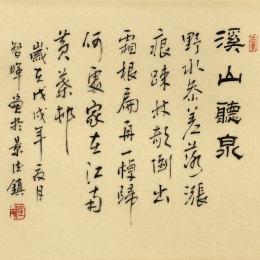 溪山聽泉
野水參差落漲
痕疎林欹倒出
霜根扁舟一棹歸
何處家在江南
黃葉邨
歲在戊戌年夏月
智暉畫於景德鎮